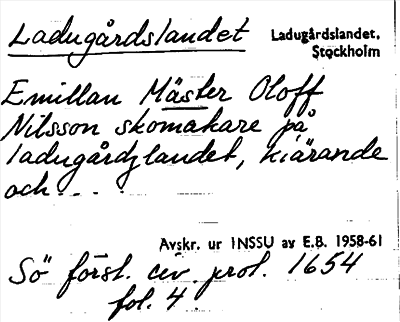 Ladugårdslandet
Ladugårdslandet,
Stockholm
Emillan Mäster Oloff
Nilsson skomakare på
ladugårdzlandet, kiärande
och...
Avskr. ur INSSU av E.B. 1958-61
Sö först. civ. prot. 1654
fol. 4.